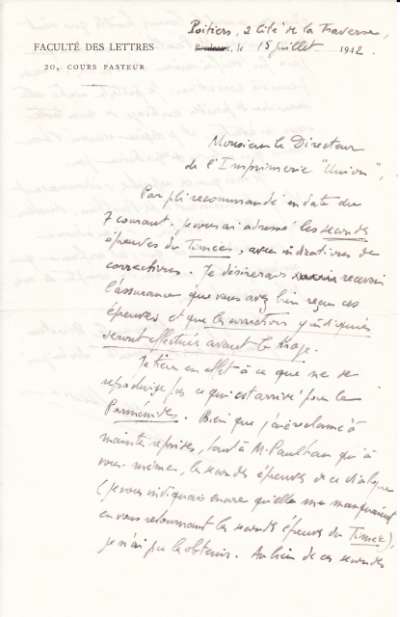 Poitiers, 2 Cité de la Traverse,
FACULTÉ DES LETTRES
20, COURS PASTEUR
le 15 juillet 1942.
Monsieur le Directeur
de l'Imprimerie "Union",
Par pli recommandé en date du
7 courant, je vous ai adressé les secondes
épreuves du Timée, avec indications de
corrections. Je désirerais recevoir
l'assurance que vous avez bien reçu ces
épreuves et que les corrections y indiquées
seront effectuées avant le tirage.
Je tiens en effet à ce que ne se
reproduise pas ce qui est arrivé pour le
Parménide. Bien que j'aie réclamé à
maintes reprises, tant à M. Paulhan qu'à
vous-même, les secondes épreuves de ce dialogue
(je vous indiquais encore qu'elles me manquaient
en vous retournant les secondes épreuves du Timée),
je n'ai pu les obtenir. Au lieu de ces secondes